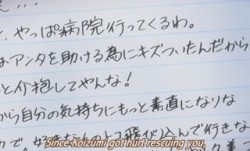 、やっぱ病院行ってくるわ。
はアンタを助ける為にキズついたんだから
と介抱してやんな!
から自分の気持ちにもっと素直になりな
で
込んで行きな
Since Koizumi got hurt rescuing you,